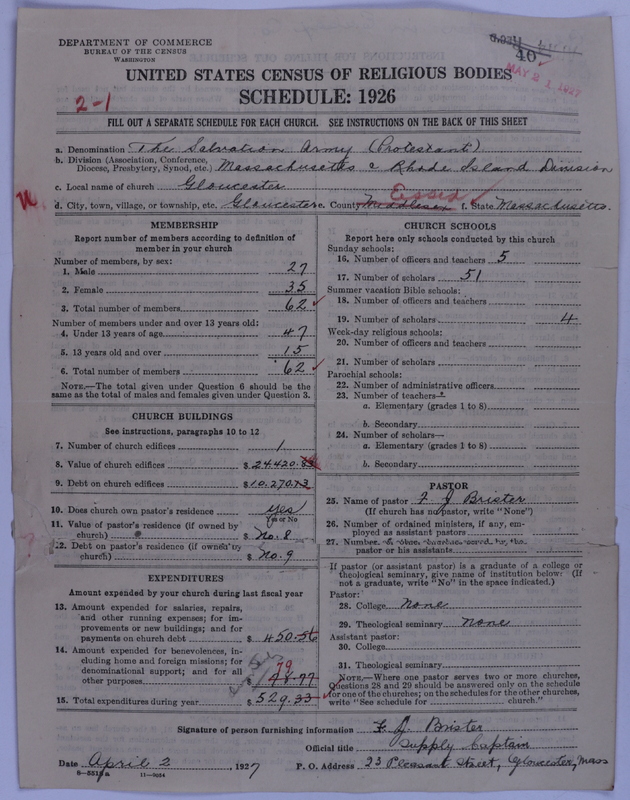 DEPARTMENT OF COMMERCE
BUREAU OF THE CENSUS
WASHINGTON
40
MAY 21 1927
UNITED STATES CENSUS OF RELIGIOUS BODIES
SCHEDULE: 1926
2-1
FILL OUT A SEPARATE SCHEDULE FOR EACH CHURCH. SEE INSTRUCTIONS ON THE BACK OF THIS SHEET
a. Denomination The Salvation Army (Protestant)
b. Division (Association, Conference, Diocese, Presbytery, Synod, etc.) Massachusetts & Rhode Island Division
c. Local name of church Gloucester
Essex
d. City, town, village, or township, etc. Gloucester e. County Middlesex f. State Massachusetts
MEMBERSHIP
Report number of members according to definition of
member in your church
Number of members, by sex:
1. Male 27
2. Female 35
3. Total number of members 62
Number of members under and over 13 years old:
4. Under 13 years of age 47
5. 13 years old and over 15
6. Total number of members 62
NOTE.—The total given under Question 6 should be
same as the total of males and females given under Question 3.
CHURCH BUILDINGS
See instructions, paragraphs 10 to 12
7. Number of church edifices 1
8. Value of church edifices $ 24,420.
9. Debt on church edifices $ 10,270.
10. Does church own pastor's residence yes
Yes or No
11. Value of pastor's residence (if owned by
church) $ No. 8
12. Debt on pastor's residence (if owned by
church) $ No. 9
EXPENDITURES
Amount expended by your church during last fiscal year
13. Amount expended for salaries, repairs,
and other running expenses; for im-
provements or new buildings; and for
payments on church debt $ 450.56
14. Amount expended for benevolences, in-
cluding home and foreign missions; for
denominational support; and for all
other purposes $ 79
15. Total expenditures during year $ 529.33
CHURCH SCHOOLS
Report here only schools conducted by this church
Sunday schools:
16. Number of officers and teachers 5
17. Number of scholars 51
Summer vacation Bible schools:
18. Number of officers and teachers
19. Number of scholars 4
Week-day religious schools:
20. Number of officers and teachers
21. Number of scholars
Parochial schools:
22. Number of administrative officers
23. Number of teachers—
a. Elementary (grades 1 to 8)
b. Secondary
24. Number of scholars—
a. Elementary (grades 1 to 8)
b. Secondary
PASTOR
25. Name of pastor F J Brister
(If church has no pastor, write "None")
26. Number of ordained ministers, if any, em-
ployed as assistant pastors
27. Number of other churches served by the
pastor or his assistants
If pastor (or assistant pastor) is a graduate of a college or
theological seminary, give name of institution below: (If
not a graduate, write "No" in the space indicated.)
Pastor:
28. College None
29. Theological seminary None
Assistant pastor:
30. College
31. Theological seminary
NOTE.—Where one pastor serves two or more churches,
Questions 28 and 29 should be answered only on the schedule
for one of the churches; on the schedules for the other churches,
write "See schedule for church."
Signature of person furnishing information F. J. Brister
Official title Supply Captain
Date April 2, 1927 P. O. Address 23 Pleasant Street, Gloucester, Mass
8—5515a 11—9034